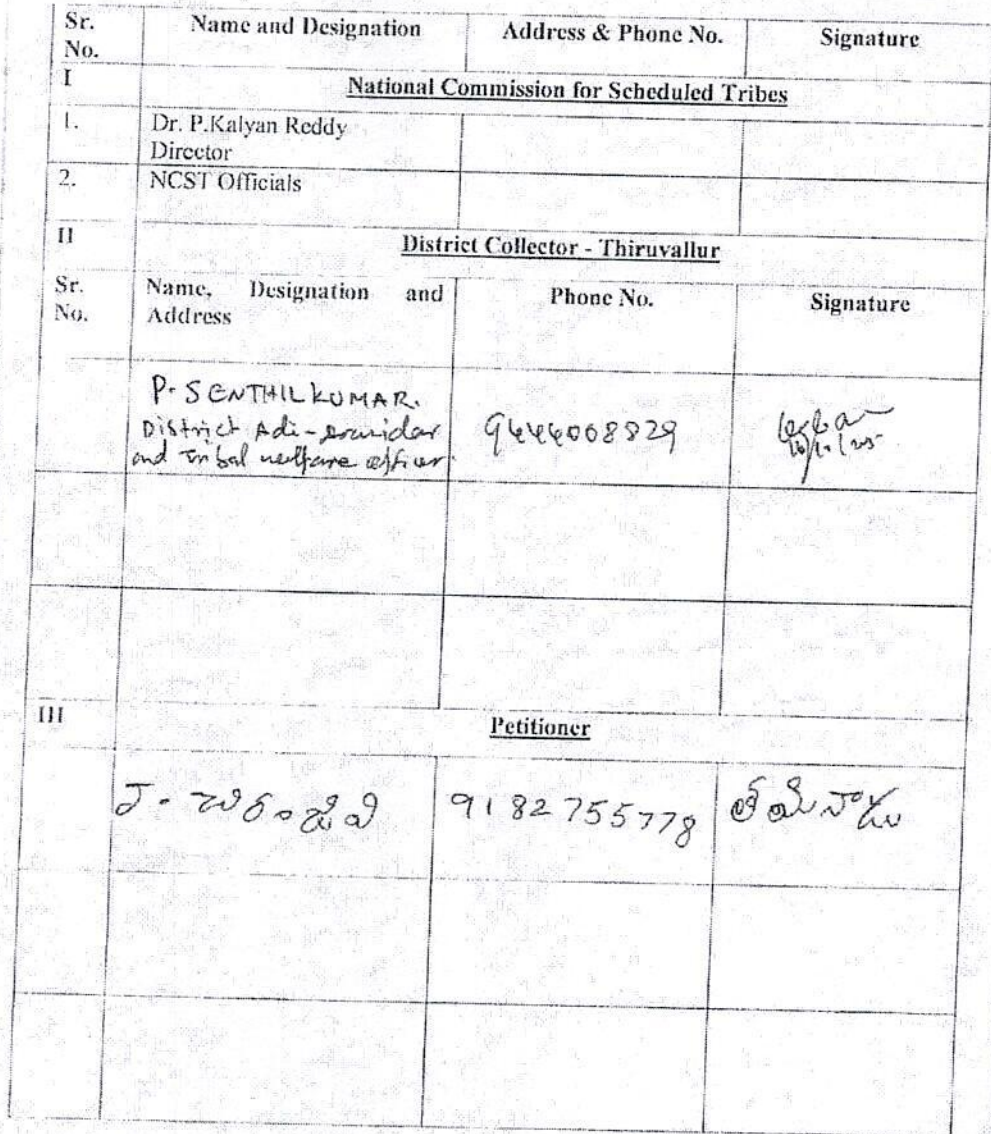 Sr. No.
Name and Designation
Address & Phone No.
Signature
I
National Commission for Scheduled Tribes
1.
Dr. P.Kalyan Reddy
Director
2.
NCST Officials
II
District Collector - Thiruvallur
Sr. No.
Name, Designation and
Address
Phone No.
Signature
P. SENTHILKUMAR.
District Adi-dravidar
and Tribal welfare officer.
9444008829
III
Petitioner
9182755778